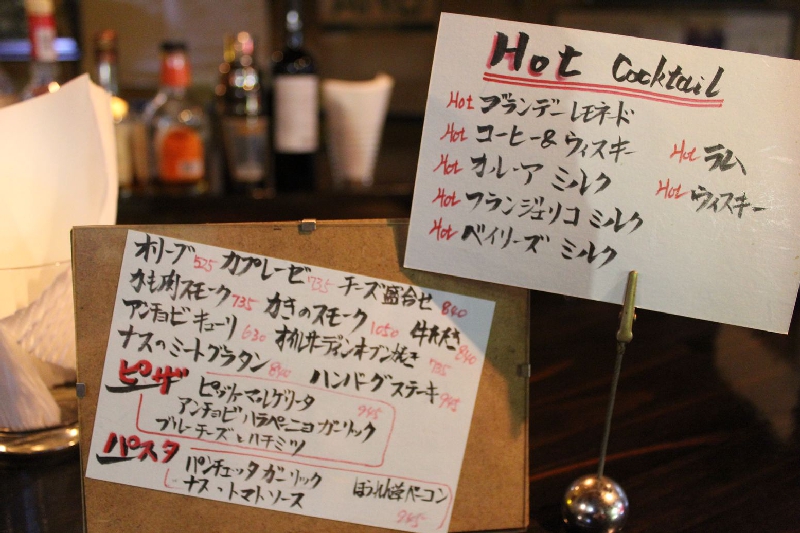 Hot Cocktail
Hot ブランデーレモネード
Hot コーヒー&ウィスキー
Hot オルーア ミルク
Hot フランジェリコ ミルク
Hot ベイリーズ ミルク
Hot ラム
Hot ウィスキー
オリーブ 525 カプレーゼ 735 チーズ盛合せ 840
かも肉スモーク 735 かきのスモーク 1050 牛たたき 840
アンチョビキューリ 630 オイルサーディンオーブン焼き 735
ナスのミートグラタン 840 ハンバーグステーキ 945
ピザ
ピッツァマルゲリータ 945
アンチョビハラペーニョガーリック
ブルーチーズとハチミツ
パスタ
パンチェッタガーリック
ナス・トマトソース
ほうれん草ベーコン
945-